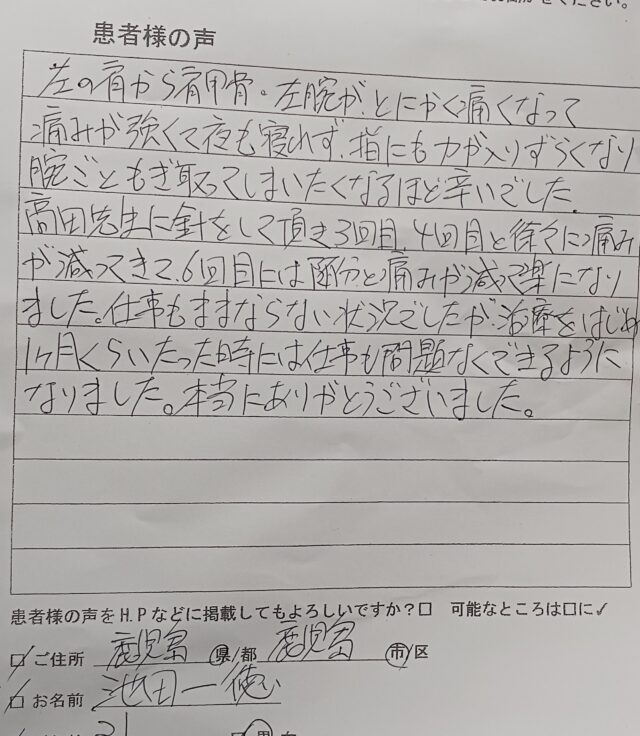 ください。
患者様の声
左の肩から肩甲骨。左腕が、とにかく痛くなって
痛みが強くて夜も寝れず、指にも力が入りずらくなり
腕ごともぎ取ってしまいたくなるほど辛いでした。
高田先生に針をして頂き3回目、4回目と徐々に痛み
が減ってきて、6回目には随分と痛みが減って楽になり
ました。仕事もままならない状況でしたが治療をはじめ
1ヶ月くらいたった時には仕事も問題なくできるように
なりました。本当にありがとうございました。
患者様の声をH.Pなどに掲載してもよろしいですか?□ 可能なところは□に✓
□ご住所 鹿児島 県/都 鹿児島 市/区
□お名前 池田一徳
21 □男